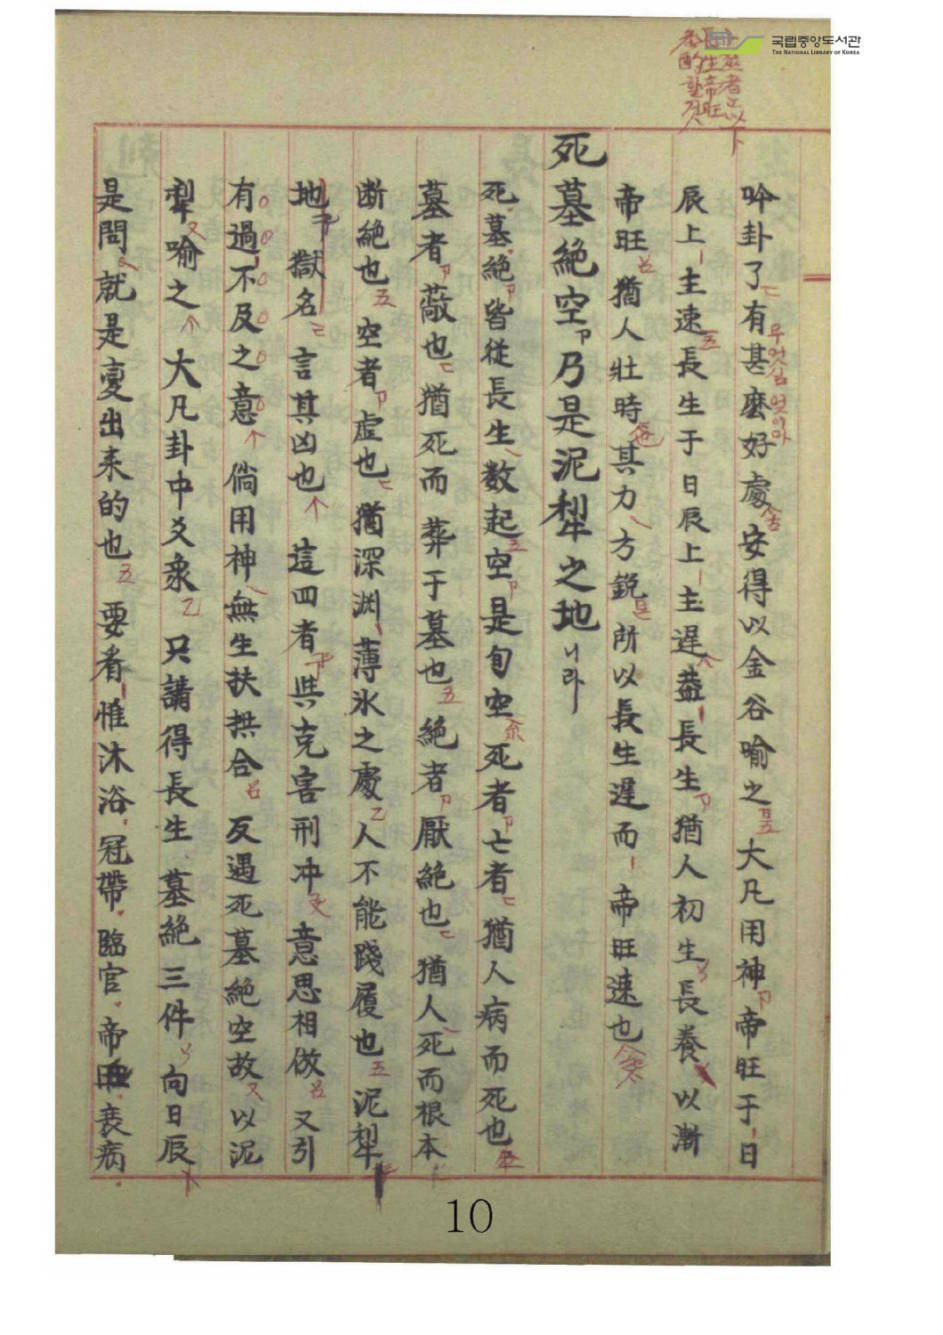 국립중앙도서관
THE NATIONAL LIBRARY OF KOREA
吟卦了有甚麽好處安得以金谷喻之 大凡用神帝旺于日
辰上主速長生于日辰上主遲蓋長生猶人初生長養以漸
帝旺猶人壯時其力方銳所以長生遲而帝旺速也
死墓絶空乃是泥犁之地니라
死墓絶皆從長生数起空是旬空死者亡者猶人病而死也
墓者蔽也猶死而葬于墓也絶者厭絶也猶人死而根本
断絶也空者虛也猶深渊薄氷之處人不能踐履也泥犂
地獄名言其凶也這四者與克害刑冲意思相倣又引
有過不及之意倘用神無生扶拱合反遇死墓絶空故以泥
犂喻之大凡卦中爻象只講得長生墓絶三件向日辰
是問就是變出来的也要看惟沐浴冠帶臨官帝旺衰病
10